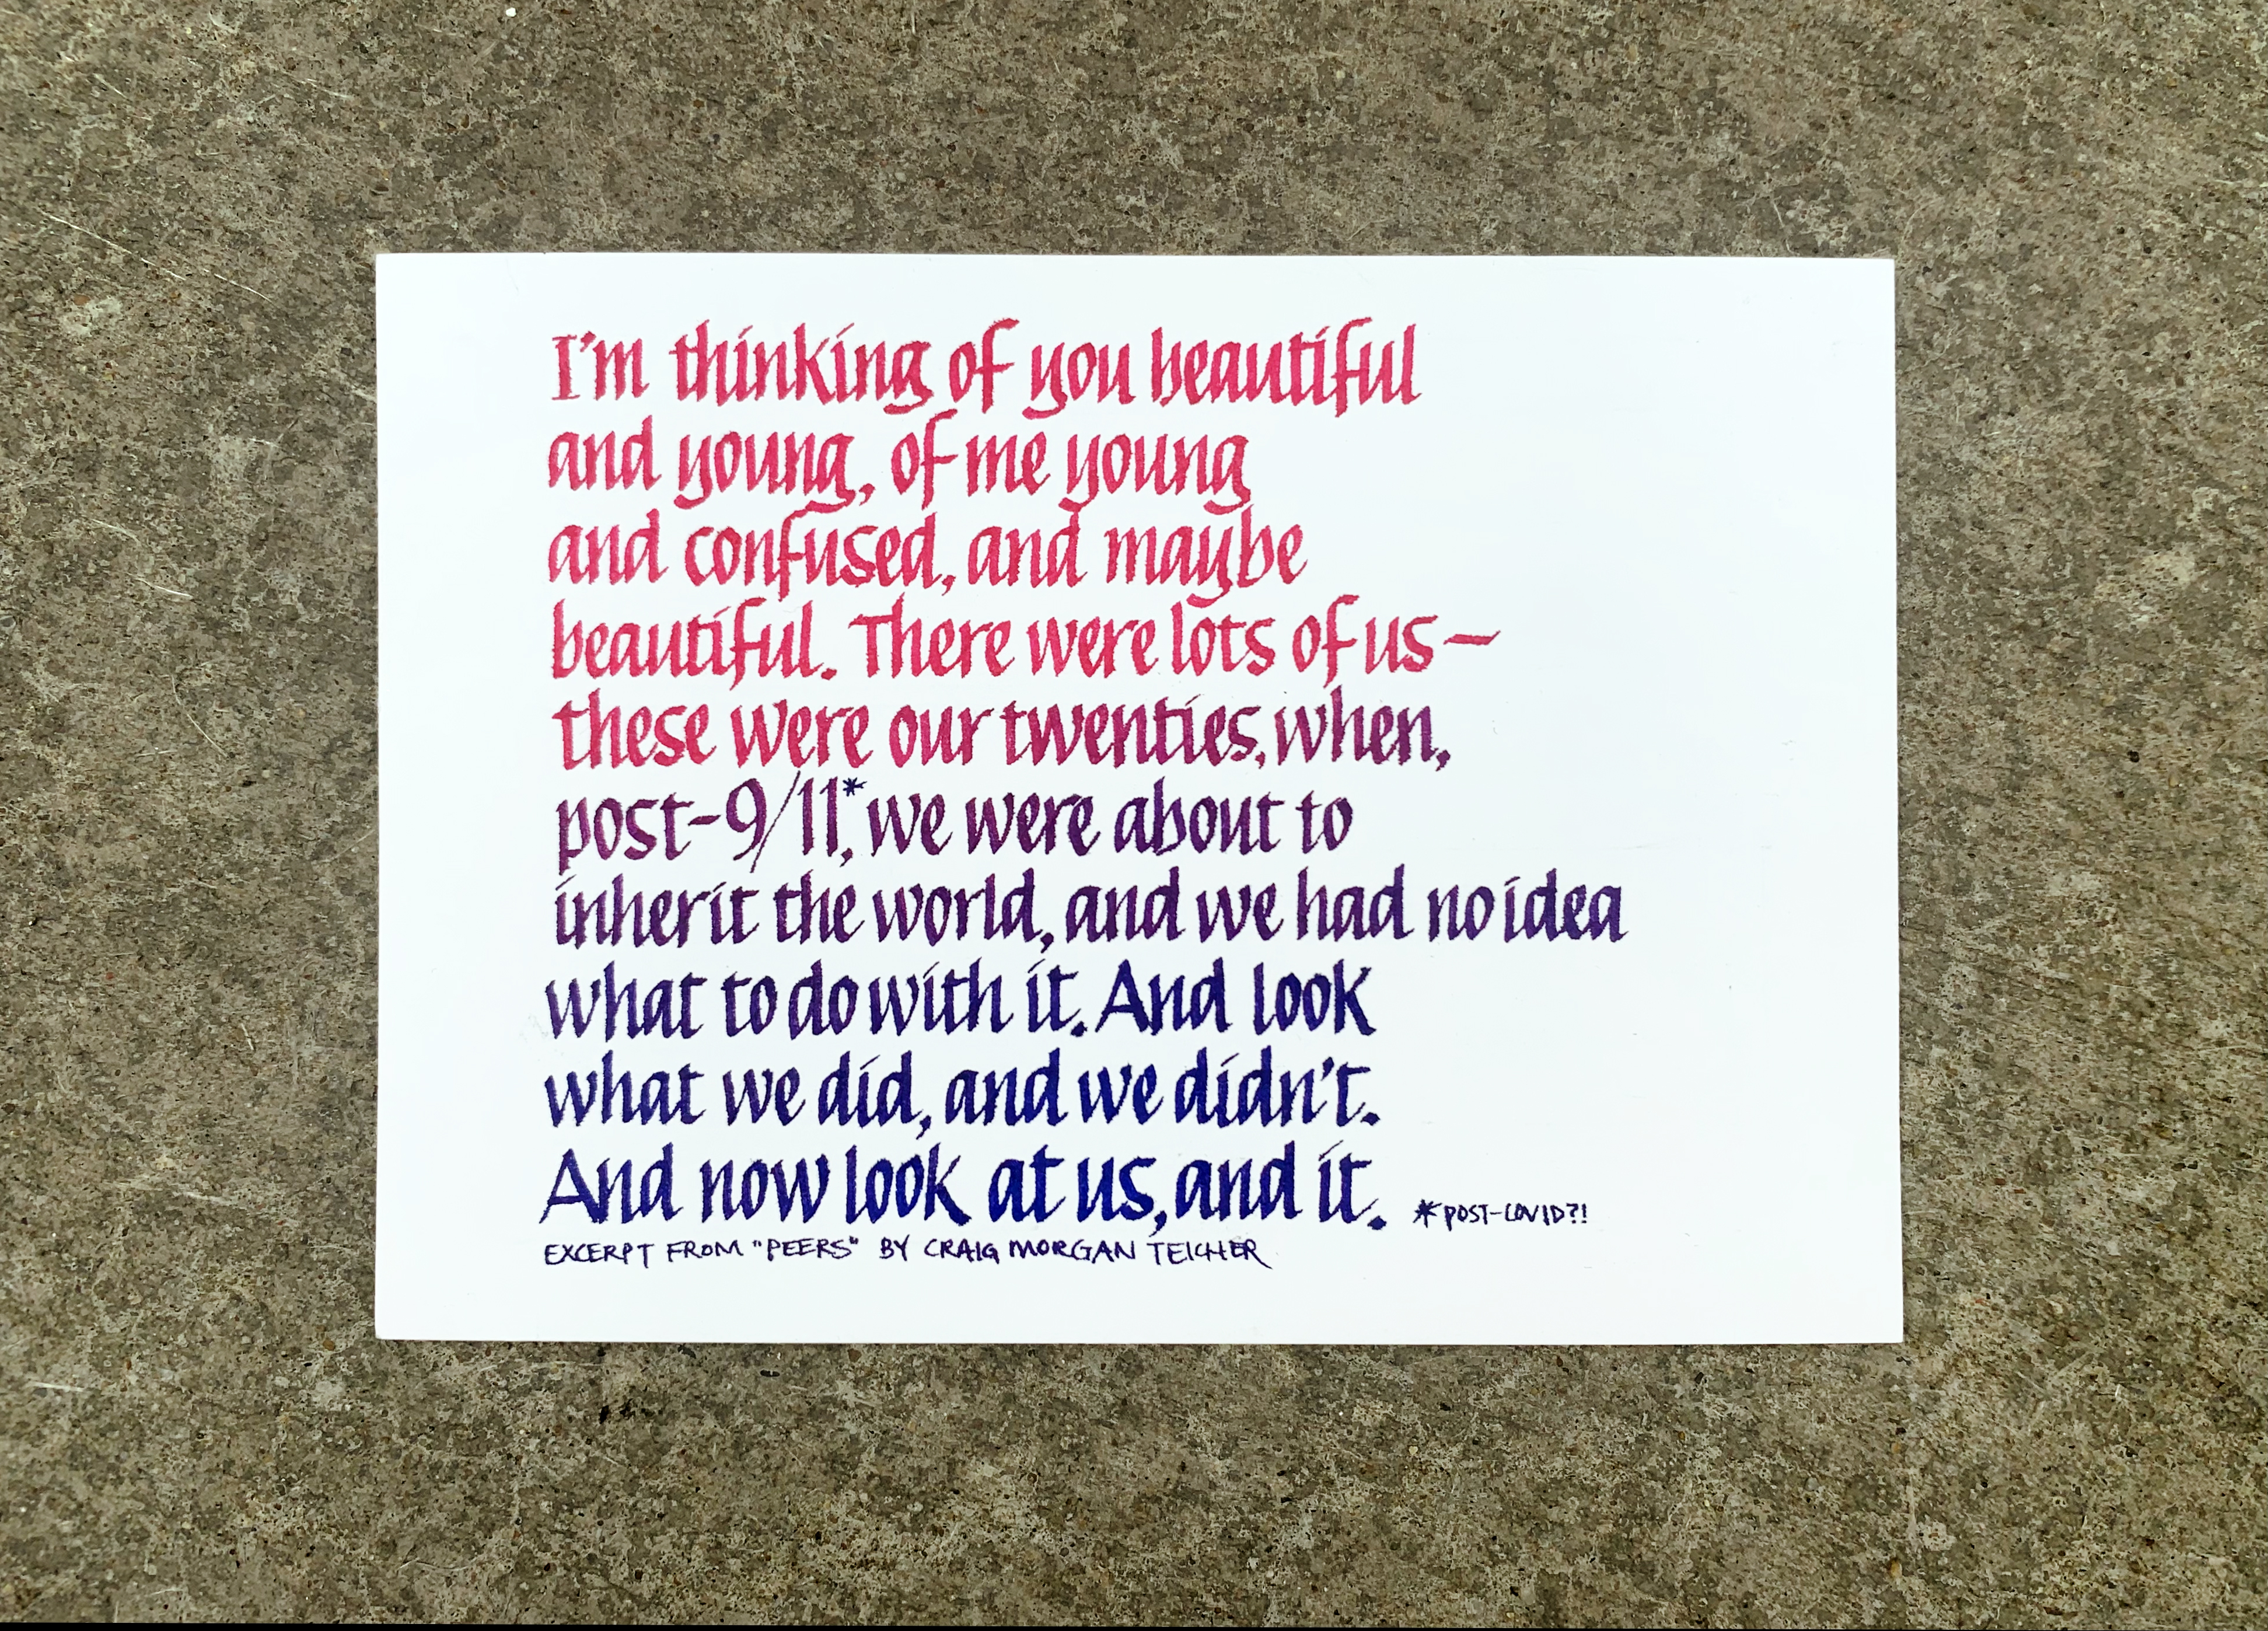 I'm thinking of you beautiful
and young, of me young
and confused, and maybe
beautiful. There were lots of us—
these were our twenties, when,
post-9/11,* we were about to
inherit the world, and we had no idea
what to do with it. And look
what we did, and we didn't.
And now look at us, and it.
*POST-COVID?!
EXCERPT FROM "PEERS" BY CRAIG MORGAN TEICHER